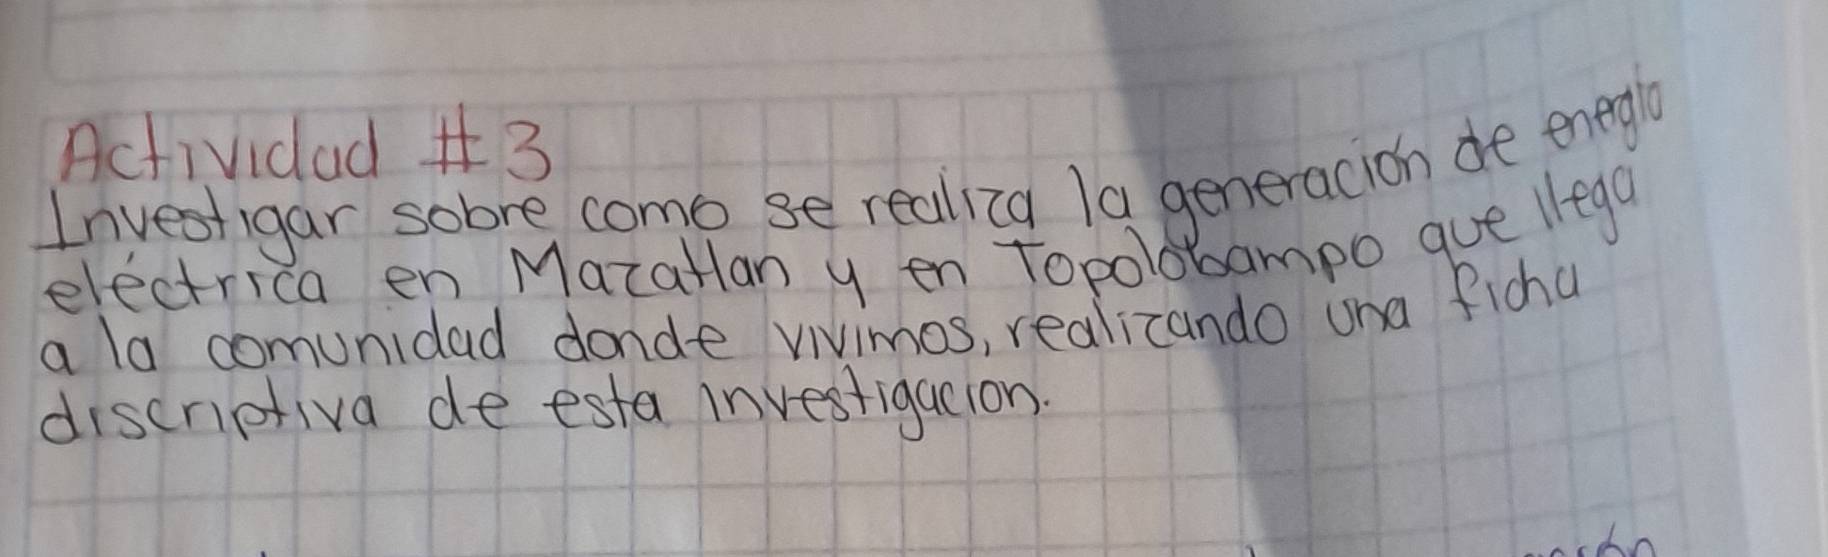 Actividad #3
Investigar sobre como se realiza la generación de enegia
eléctrica en Mazatlan y en Topolobampo que llega
a la comunidad donde vivimos, realizando una ficha
discriptiva de esta investigacion.